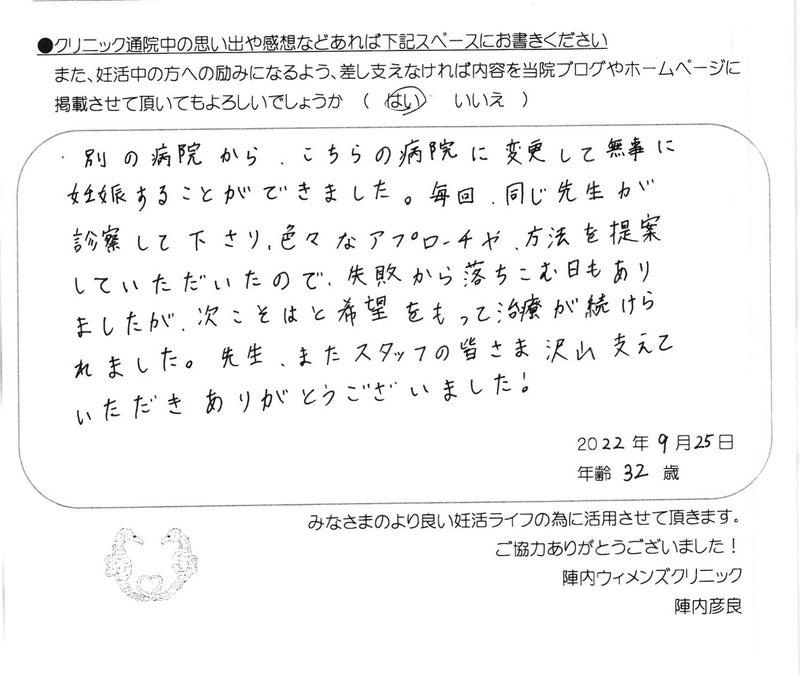 ●クリニック通院中の思い出や感想などあれば下記スペースにお書きください
また、妊活中の方への励みになるよう、差し支えなければ内容を当院ブログやホームページに
掲載させて頂いてもよろしいでしょうか （ はい いいえ ）
別の病院から、こちらの病院に変更して無事に
妊娠することができました。毎回、同じ先生が
診察して下さり、色々なアプローチや、方法を提案
していただいたので、失敗から落ちこむ日もあり
ましたが、次こそはと希望をもって治療が続けら
れました。先生、またスタッフの皆さま沢山支えて
いただきありがとうございました!
2022年9月25日
年齢 32 歳
みなさまのより良い妊活ライフの為に活用させて頂きます。
ご協力ありがとうございました！
陣内ウィメンズクリニック
陣内彦良